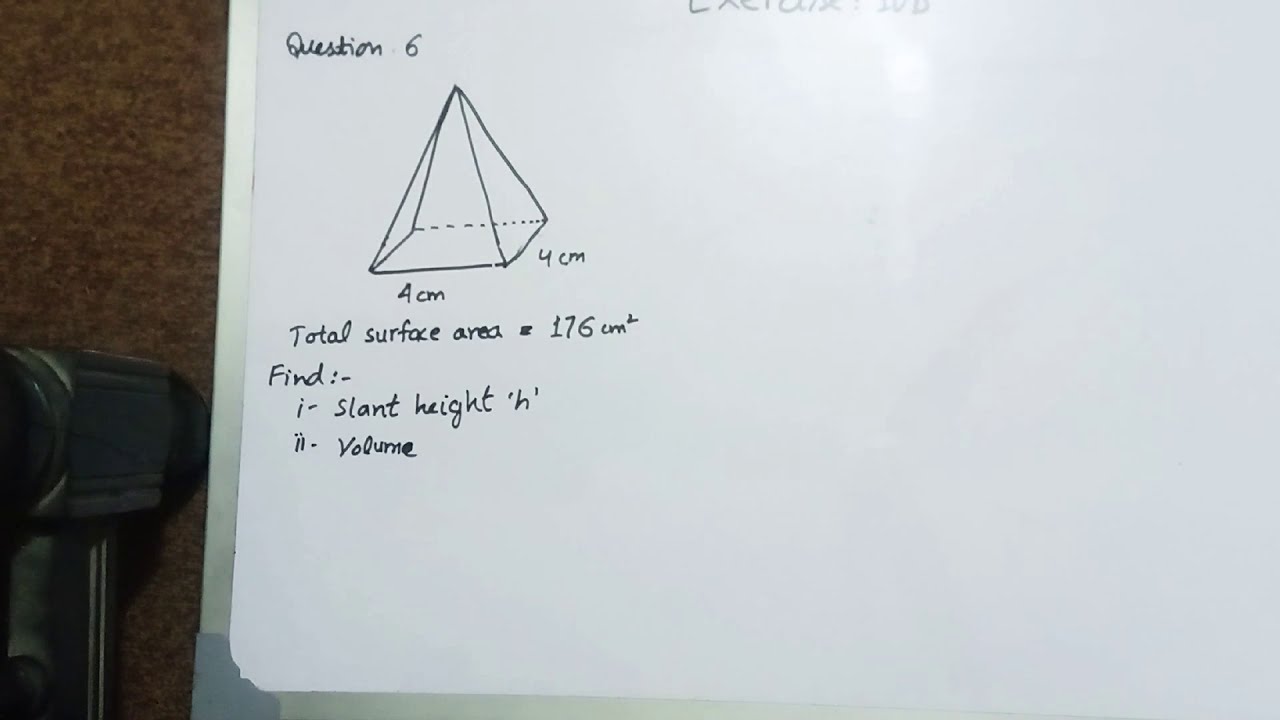 Question 6
4 cm
4 cm
Total surface area = 176 cm²
Find :-
i- Slant height 'h'
ii- Volume